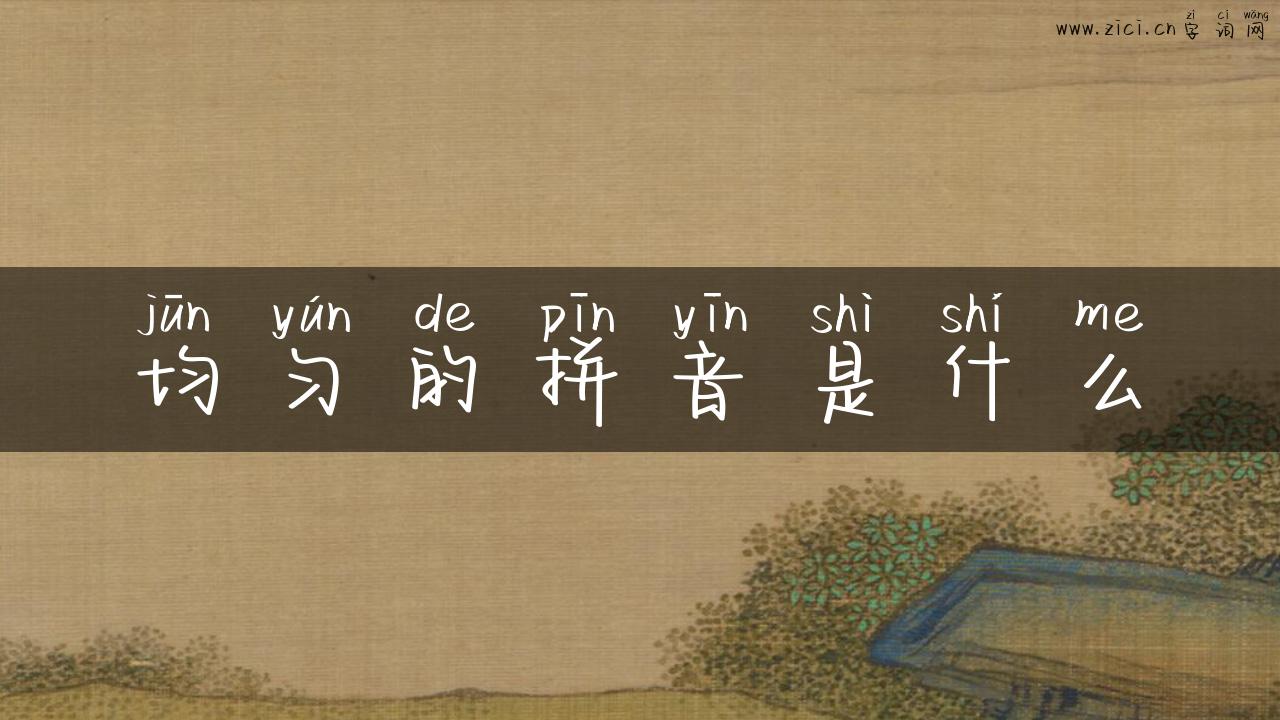 zì cí wǎng
www.zici.cn 字词网
jūn yún de pīn yīn shì shí me
均匀的拼音是什么